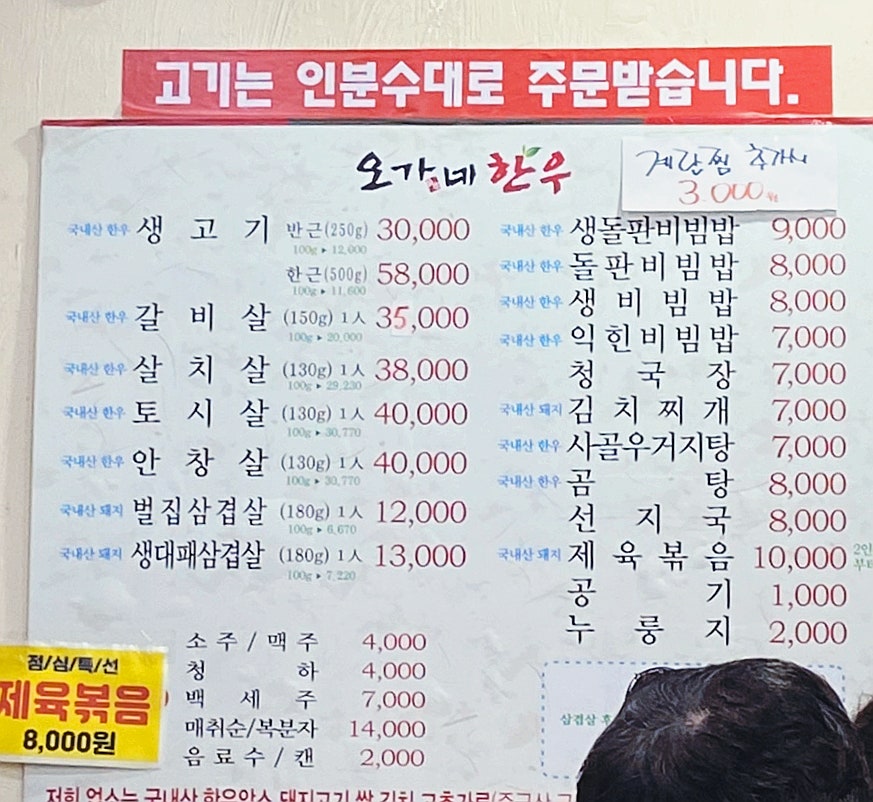 고기는 인분수대로 주문받습니다.
오가네한우
계란찜 추가시
3.000원
국내산 한우 생 고 기 반근(250g) 30,000
100g ▸ 12,000
한근(500g) 58,000
100g ▸ 11,600
국내산 한우 갈 비 살 (150g) 1人 35,000
100g ▸ 20,000
국내산 한우 살 치 살 (130g) 1人 38,000
100g ▸ 29,230
국내산 한우 토 시 살 (130g) 1人 40,000
100g ▸ 30,770
국내산 한우 안 창 살 (130g) 1人 40,000
100g ▸ 30,770
국내산 돼지 벌집삼겹살 (180g) 1人 12,000
100g ▸ 6,670
국내산 돼지 생대패삼겹살 (180g) 1人 13,000
100g ▸ 7,220
국내산 한우 생돌판비빔밥 9,000
국내산 한우 돌판비빔밥 8,000
국내산 한우 생 비 빔 밥 8,000
국내산 한우 익힌비빔밥 7,000
청 국 장 7,000
국내산 돼지 김 치 찌 개 7,000
국내산 한우 사골우거지탕 7,000
국내산 한우 곰 탕 8,000
선 지 국 8,000
국내산 돼지 제 육 볶 음 10,000 2인
부터
공 기 1,000
누 룽 지 2,000
소 주 / 맥 주 4,000
청 하 4,000
백 세 주 7,000
매취순/복분자 14,000
음 료 수 / 캔 2,000
점/심/특/선
제육볶음
8,000원
삼겹살 후
저희 업소는 국내산 한우암소 돼지고기 쌀 김치 고추가루(중국산